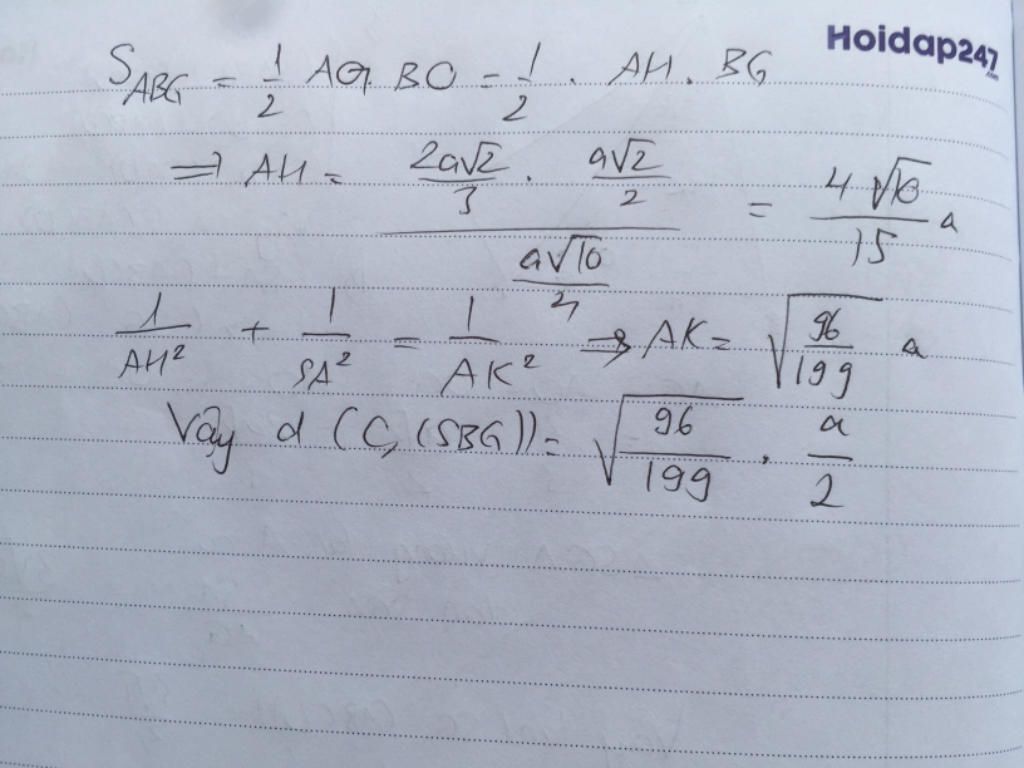 Hoidap247.com
S_ABG = 1/2 AG . BO = 1/2 . AH . BG
⇒ AH = (2a√2/3 . a√2/2) / (a√10/4) = 4√10/15 a
1/AH² + 1/SA² = 1/AK² ⇒ AK = √(96/199) a
Vậy d (C, (SBG)) = √(96/199) . a/2